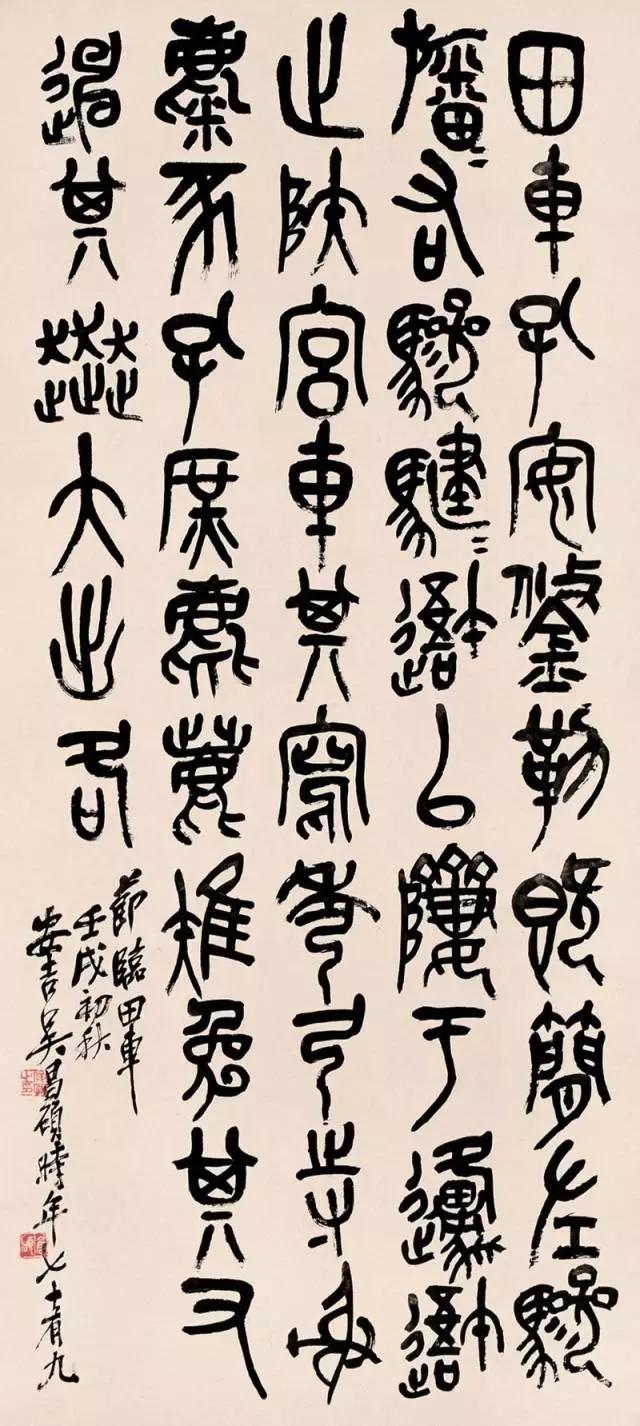 田車孔安鋚勒既簡左驂
旛=右驂騝=吾以隮于邍吾
止陕宮車其寫秀弓寺射
麋豕孔庶麀鹿雉兔其又
其奔大出各
節臨田車
壬戌初秋
安吉吳昌碩時年七十有九